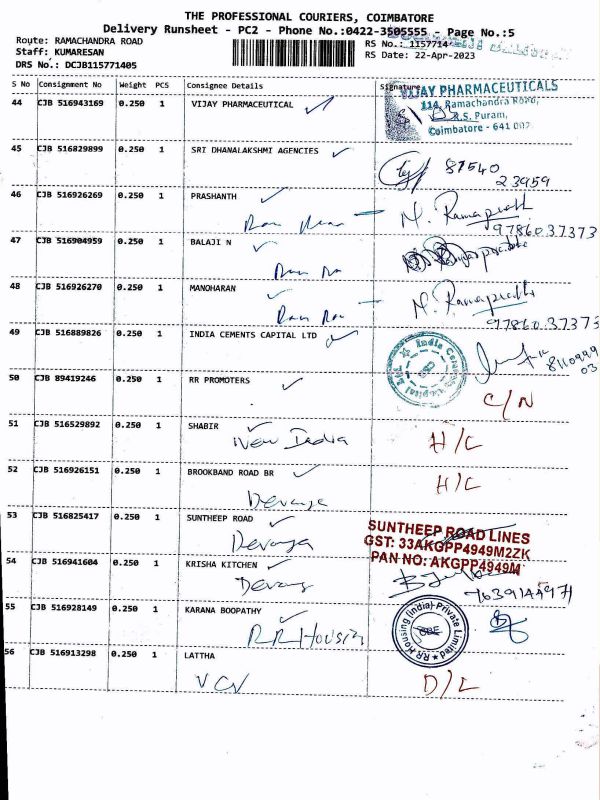 THE PROFESSIONAL COURIERS, COIMBATORE
Delivery Runsheet - PC2 - Phone No.:0422-3505555 - Page No.:5
Route: RAMACHANDRA ROAD RS No.: 1157714
Staff: KUMARESAN RS Date: 22-Apr-2023
DRS No.: DCJB115771405
S No Consignment No Weight PCS Consignee Details Signature
44 CJB 516943169 0.250 1 VIJAY PHARMACEUTICAL
VIJAY PHARMACEUTICALS
114, Ramachandra Road,
R.S. Puram,
Coimbatore - 641 002.
45 CJB 516829899 0.250 1 SRI DHANALAKSHMI AGENCIES
87540
23959
46 CJB 516926269 0.250 1 PRASHANTH
N. Ramaprabh
9786037373
47 CJB 516904959 0.250 1 BALAJI N
48 CJB 516926270 0.250 1 MANOHARAN
N. Ramaprabh
9786037373
49 CJB 516889826 0.250 1 INDIA CEMENTS CAPITAL LTD
India Cements Capital Ltd
8110999
03
50 CJB 89419246 0.250 1 RR PROMOTERS
C/N
51 CJB 516529892 0.250 1 SHABIR
New India H/C
52 CJB 516926151 0.250 1 BROOKBAND ROAD BR
Devanga H/C
53 CJB 516825417 0.250 1 SUNTHEEP ROAD
Devanga
SUNTHEEP ROAD LINES
GST: 33AKGPP4949M2ZK
PAN NO: AKGPP4949M
54 CJB 516941604 0.250 1 KRISHA KITCHEN
Devang
7639144971
55 CJB 516928149 0.250 1 KARANA BOOPATHY
RR Housing
RR Housing (India) Private Limited
56 CJB 516913298 0.250 1 LATTHA
VCV D/C